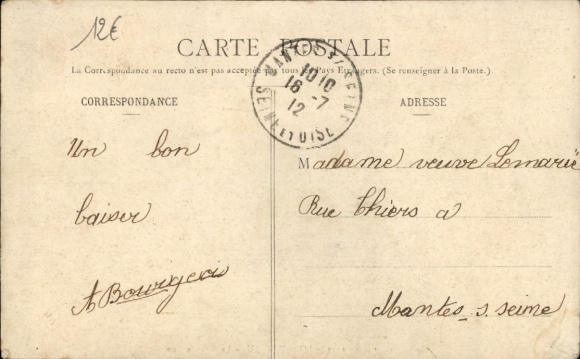 12€
CARTE POSTALE
La Correspondance au recto n'est pas acceptée par tous les Pays Etrangers. (Se renseigner à la Poste.)
CORRESPONDANCE
ADRESSE
MANTES S/ SEINE
1010
16 -7
12
SEINE ET OISE
Un bon
baiser
A Bourgeois
Madame veuve Lemarié
Rue Thiers a
Mantes s. seine